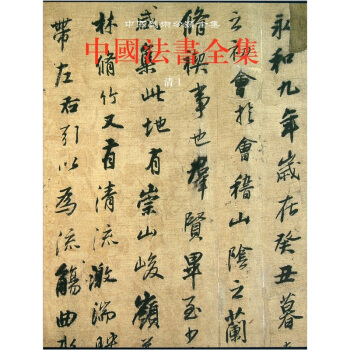 中國美術分類全集
中國法書全集
清1
永和九年歲在癸丑暮
之初會於會稽山陰之蘭
脩禊事也羣賢畢至少
咸集此地有崇山峻嶺
林脩竹又有清流激湍映
帶左右引以為流觴曲水